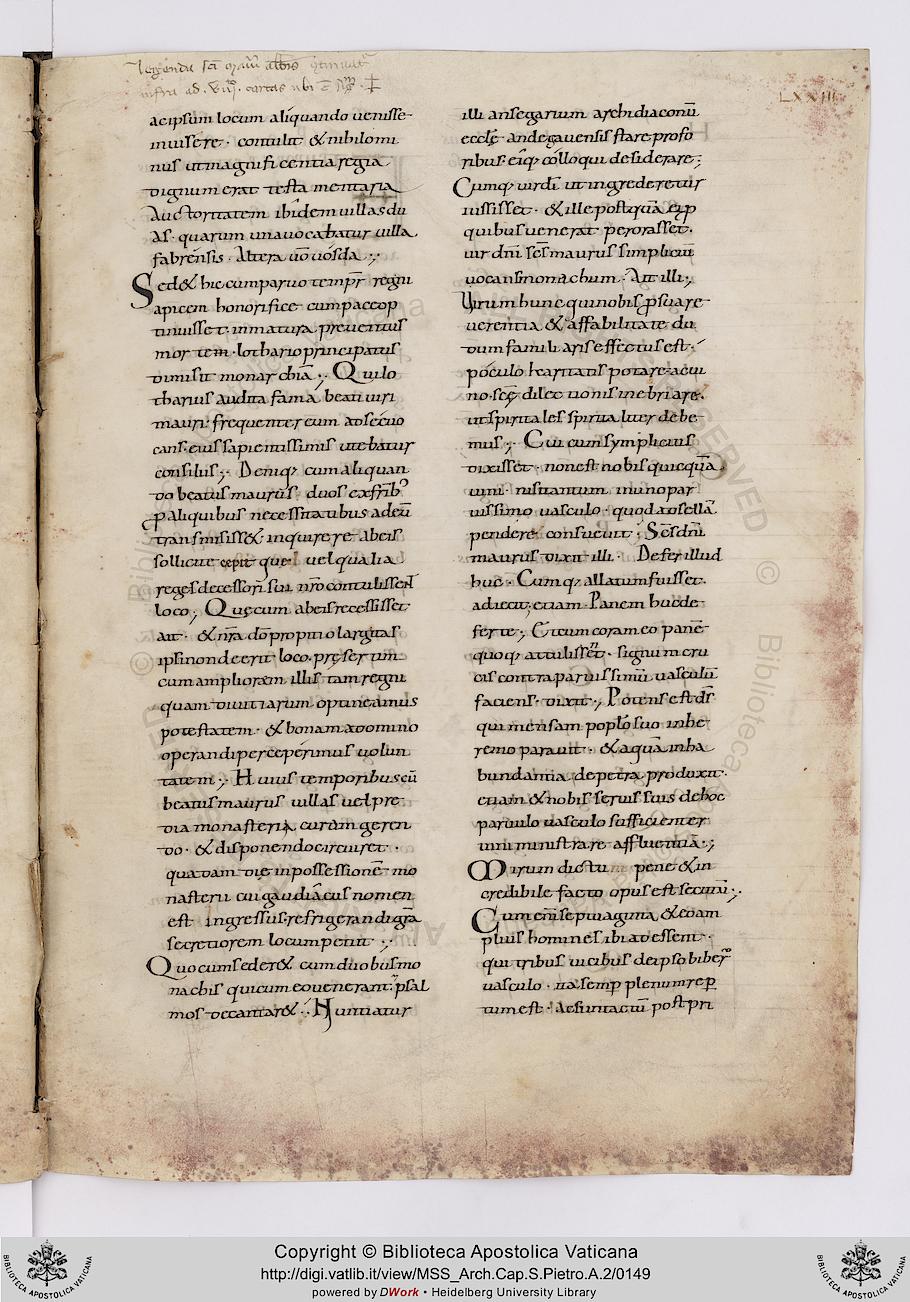 Legenda sci mauri abbis
infra ad. cartas ubi
LXXIII
ac ipsum locum aliquando uenisse
inuisere. contulit & nihilomi
nus ut magnificentia regia
dignum erat testamentaria
auctoritatem ibidem uillas du
as. quarum una uocabatur uilla
fabrensis. Altera uo uosda.;
Sed & hic cum paruo tempr regni
apicem honorifice cum pace op
tinuisset inmatura preuentus
mortem. lothario principatus
dimisit monarchiã.; Quilo
tharius audita fama beati uiri
mauri. frequenter eum adsecũo
cans. eius sapientissimis utebatur
consiliis.; Deniq; cum aliquan
do beatus maurus. duos ex frib;
p aliquibus necessitatibus ad eũ
transmisiss&. inquirere ab eis
sollicite cepit que uel qualia
reges decessorũ sui nro contulissent
loco; Que cum ab eis recessisset
ait. & nra dõ propitio largitas
ipsi non deerit loco. preser tim
cum ampliorem illis tam regni
quam diuitiarum optineamus
potestatem. & bonam a domino
operandi perceperimus uolun
tatem.; Huius temporibus cũ
beatus maurus uillas uel pre
dia monasterii curam geren
do. & disponendo circuiret.
quadam die in possessionẽ mo
nasterii cui gaudiacus nomen
est ingressus. refrigerandi grã
secretiorem locum petiit.;
Quo cum seder& cum duobus mo
nachis qui cum eo uenerant. psal
mos decantar&. Nuntiatur
illi ansegarum archidiaconũ
ecclę andegauensis stare prefo
ribus. eiq; colloqui desiderare;
Cumq; uir dĩ ut ingrederetur
iussisset. & ille postquã ei p
quibus uenerat perorasset.
uir dni scs maurus simpliciũ
uocans monachum. Ait illi;
Virum hunc qui nobis p sua re
uerentia & affabilitate du
dum familiaris effectus est.
poculo karitatis potare. ac ui
no. sce dilectionis inebriare.
ut spiritales spiritaliter debe
mus.; Cui cum symplicius
dixisset. non est nobis quicquã
uini. nisi tantum in uno par
uissimo uasculo. quod ad sellã
pendere consueuit. Scs dni
maurus dixit illi. Defer illud
huc. Cumq; allatum fuisset.
adiecit; etiam. Panem huc de
ferte; Et cum coram eo panẽ
quoq; attulissent. signum cru
cis contra paruissimũ uasculũ
faciens. dixit; Potens est ds
qui mensam poplo suo in he
remo parauit. & aquã in ha
bundantia de petra produxit.
etiam & nobis seruis suis de hoc
paruulo uasculo sufficienter
uini ministrare affluentiã.;
Mirum dictu pene & in
credibile facto opus est secutũ.;
Cum eni septuaginta & eo am
plius homines ibi adessent.
qui tribus uicibus de ipso biber
uasculo. ita semp plenum rep
tum est. Ac si intactũ post pri
Copyright © Biblioteca Apostolica Vaticana
http://digi.vatlib.it/view/MSS_Arch.Cap.S.Pietro.A.2/0149
powered by DWork • Heidelberg University Library
BIBLIOTECA APOSTOLICA VATICANA
BIBLIOTECA APOSTOLICA VATICANA